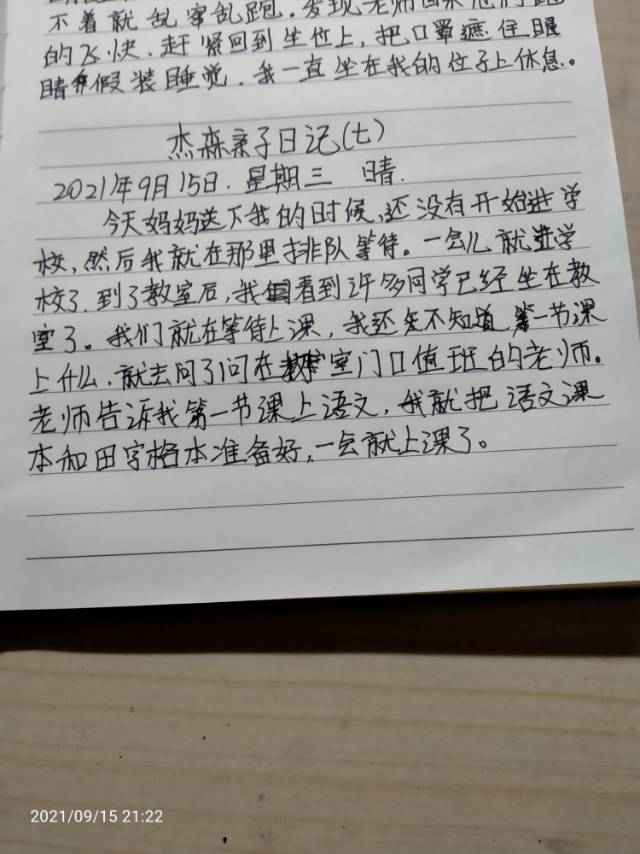 不着就乱窜乱跑。发现老师回来他们跑
的飞快.赶紧回到坐位上,把口罩遮住眼
睛假装睡觉.我一直坐在我的位子上休息。
杰森亲子日记(七)
2021年9月15日.星期三 晴.
今天妈妈送下我的时候,还没有开始进学
校,然后我就在那里排队等待。一会儿就进学
校了.到了教室后,我看到许多同学已经坐在教
室了。我们就在等待上课,我还不知道第一节课
上什么.就去问了问在教室门口值班的老师。
老师告诉我第一节课上语文,我就把语文课
本和田字格本准备好,一会就上课了。
2021/09/15 21:22